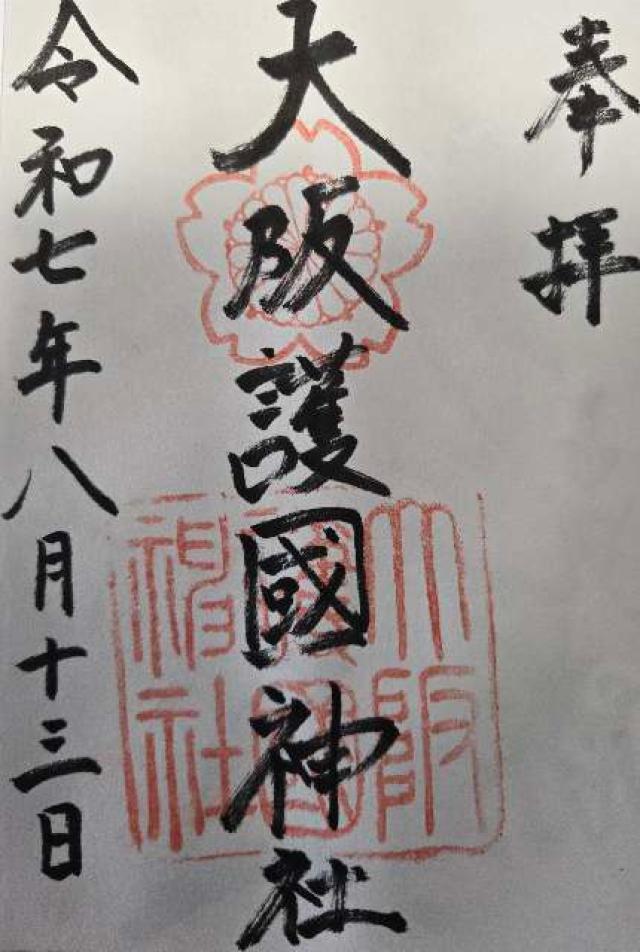 奉拝
大阪護國神社
令和七年八月十三日
大阪護國神社